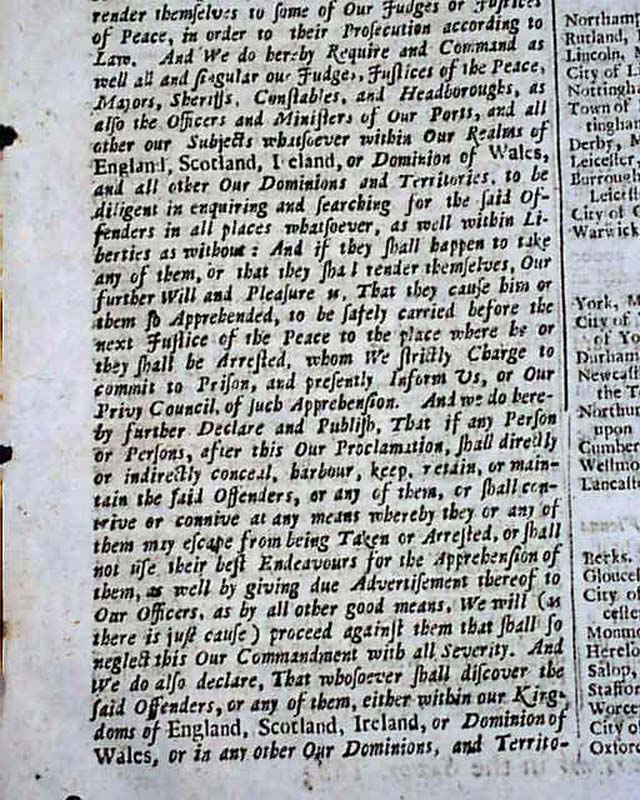 render themselves to ſome of Our Judges or Juſtices
of Peace, in order to their Proſecution according to
Law. And We do hereby Require and Command as
well all and ſingular our Judges, Juſtices of the Peace,
Majors, Sheriffs, Conſtables, and Headboroughs, as
alſo the Officers and Miniſters of Our Ports, and all
other our Subjects whatſoever within Our Realms of
England, Scotland, I eland, or Dominion of Wales,
and all other Our Dominions and Territories, to be
diligent in enquiring and ſearching for the ſaid Of-
fenders in all places whatſoever, as well within Li-
berties as without: And if they ſhall happen to take
any of them, or that they ſhall render themſelves, Our
further Will and Pleaſure is, That they cauſe him or
them ſo Apprehended, to be ſafely carried before the
next Juſtice of the Peace to the place where he or
they ſhall be Arreſted, whom We ſtrictly Charge to
commit to Priſon, and preſently Inform Us, or Our
Privy Council, of ſuch Apprehenſion. And we do here-
by further Declare and Publiſh, That if any Perſon
or Perſons, after this Our Proclamation, ſhall directly
or indirectly conceal, harbour, keep, retain, or main-
tain the ſaid Offenders, or any of them, or ſhall con-
trive or connive at any means whereby they or any of
them may eſcape from being Taken or Arreſted, or ſhall
not uſe their beſt Endeavours for the Apprehenſion of
them, as well by giving due Advertiſement thereof to
Our Officers, as by all other good means, We will (as
there is juſt cauſe) proceed againſt them that ſhall ſo
neglect this Our Commandment with all Severity. And
We do alſo declare, That whoſoever ſhall diſcover the
ſaid Offenders, or any of them, either within our King-
doms of England, Scotland, Ireland, or Dominion of
Wales, or in any other Our Dominions, and Territo-
Northam
Rutland,
Lincoln, M
City of L
Nottingha
Town of
tingha
Derby, M
Leiceſter,
Burrough
Leiceſt
City of C
Warwick
York, M
City of
of Yo
Durham
Newcaſt
the T
Northu
upon
Cumber
Weſtmo
Lancaſt
Berks.
Glouceſ
City of
ceſte
Monm
Herefo
Salop,
Staffor
Worce
City of
Oxfor